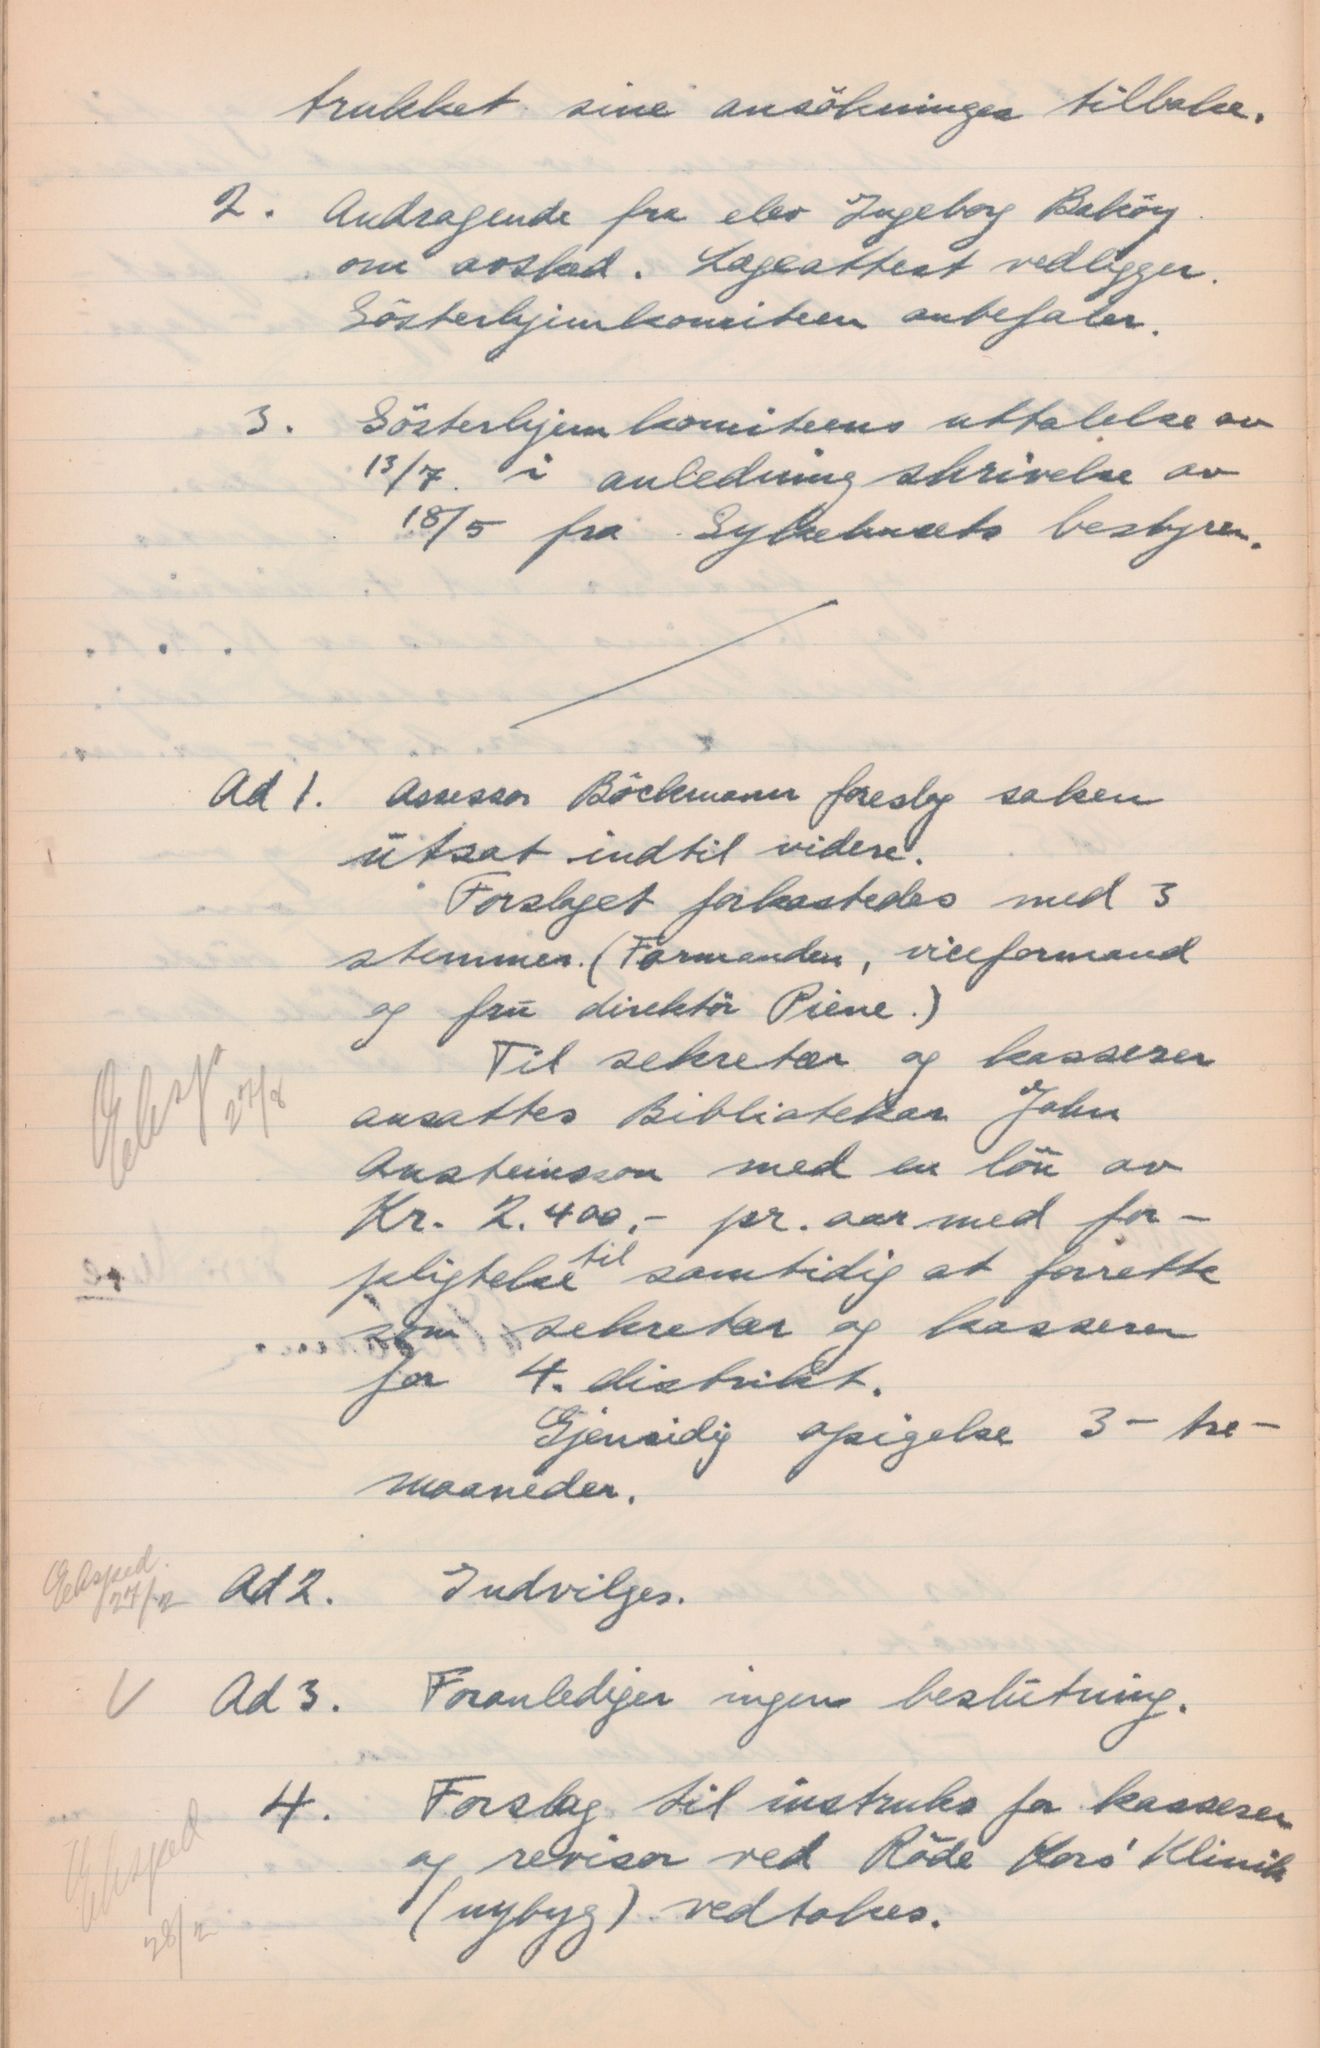 trukket sine ansökninger tilbake.
2. Andragende fra elev Ingeborg Baköy
om avsked. Lægeattest vedligger.
Sösterhjemkomiteen anbefaler.
3. Sösterhjemkomiteens uttalelse av
13/7 i anledning skrivelse av
18/5 fra Sykehusets bestyrer.
Ad 1. Assessor Böckmann foreslog saken
utsat indtil videre.
Forslaget forkastedes med 3
stemmer. (Formanden, viceformand
og fru direktör Piene.)
Til sekretær og kasserer
ansattes Bibliotekar John
Ansteinsson med en lön av
Kr. 2.400,- pr. aar med for-
pligtelse til samtidig at forrette
som sekretær og kasserer
for 4. distrikt.
Gjensidig opsigelse 3 - tre -
maaneder.
Eksp. 27/8
Eksped. 27/2
Ad 2. Indvilges.
V Ad 3. Foranlediger ingen beslutning.
4. Forslag til instruks for kasserer
og revisor ved Röde Kors' Klinik
(nybyg) vedtokes.
Eksped
28/2